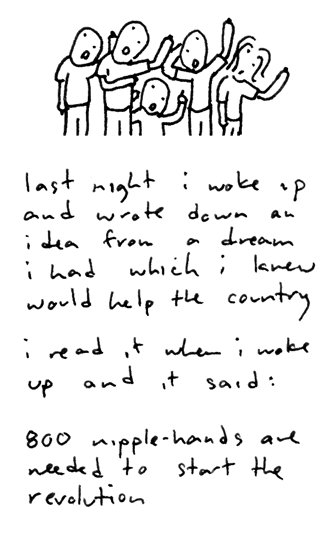 last night i woke up
and wrote down an
idea from a dream
i had which i knew
would help the country
i read it when i woke
up and it said:
800 nipple-hands are
needed to start the
revolution